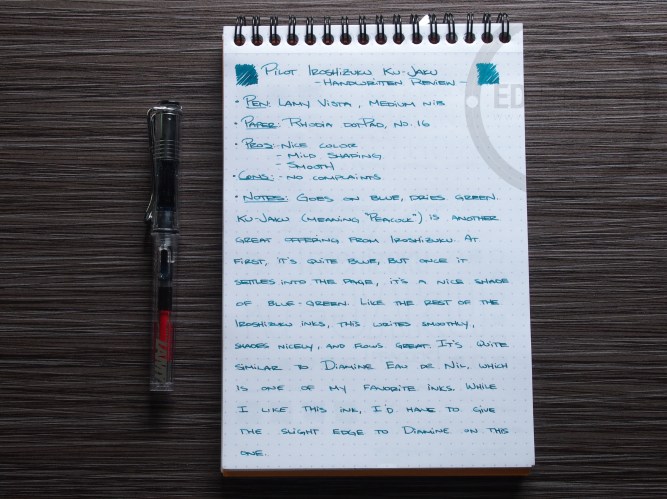 Pilot Iroshizuku Ku-Jaku
- Handwritten Review -
• Pen: Lamy Vista, Medium nib
• Paper: Rhodia dotPad, No. 16
• Pros: - Nice color
- Mild shading
- Smooth
• Cons: - No complaints
• Notes: Goes on blue, dries green.
Ku-Jaku (meaning "Peacock") is another
great offering from Iroshizuku. At
first, it's quite blue, but once it
settles into the page, it's a nice shade
of blue-green. Like the rest of the
Iroshizuku inks, this writes smoothly,
shades nicely, and flows great. It's quite
similar to Diamine Eau de Nil, which
is one of my favorite inks. While
I like this ink, I'd have to give
the slight edge to Diamine on this
one.
ED
LAMY